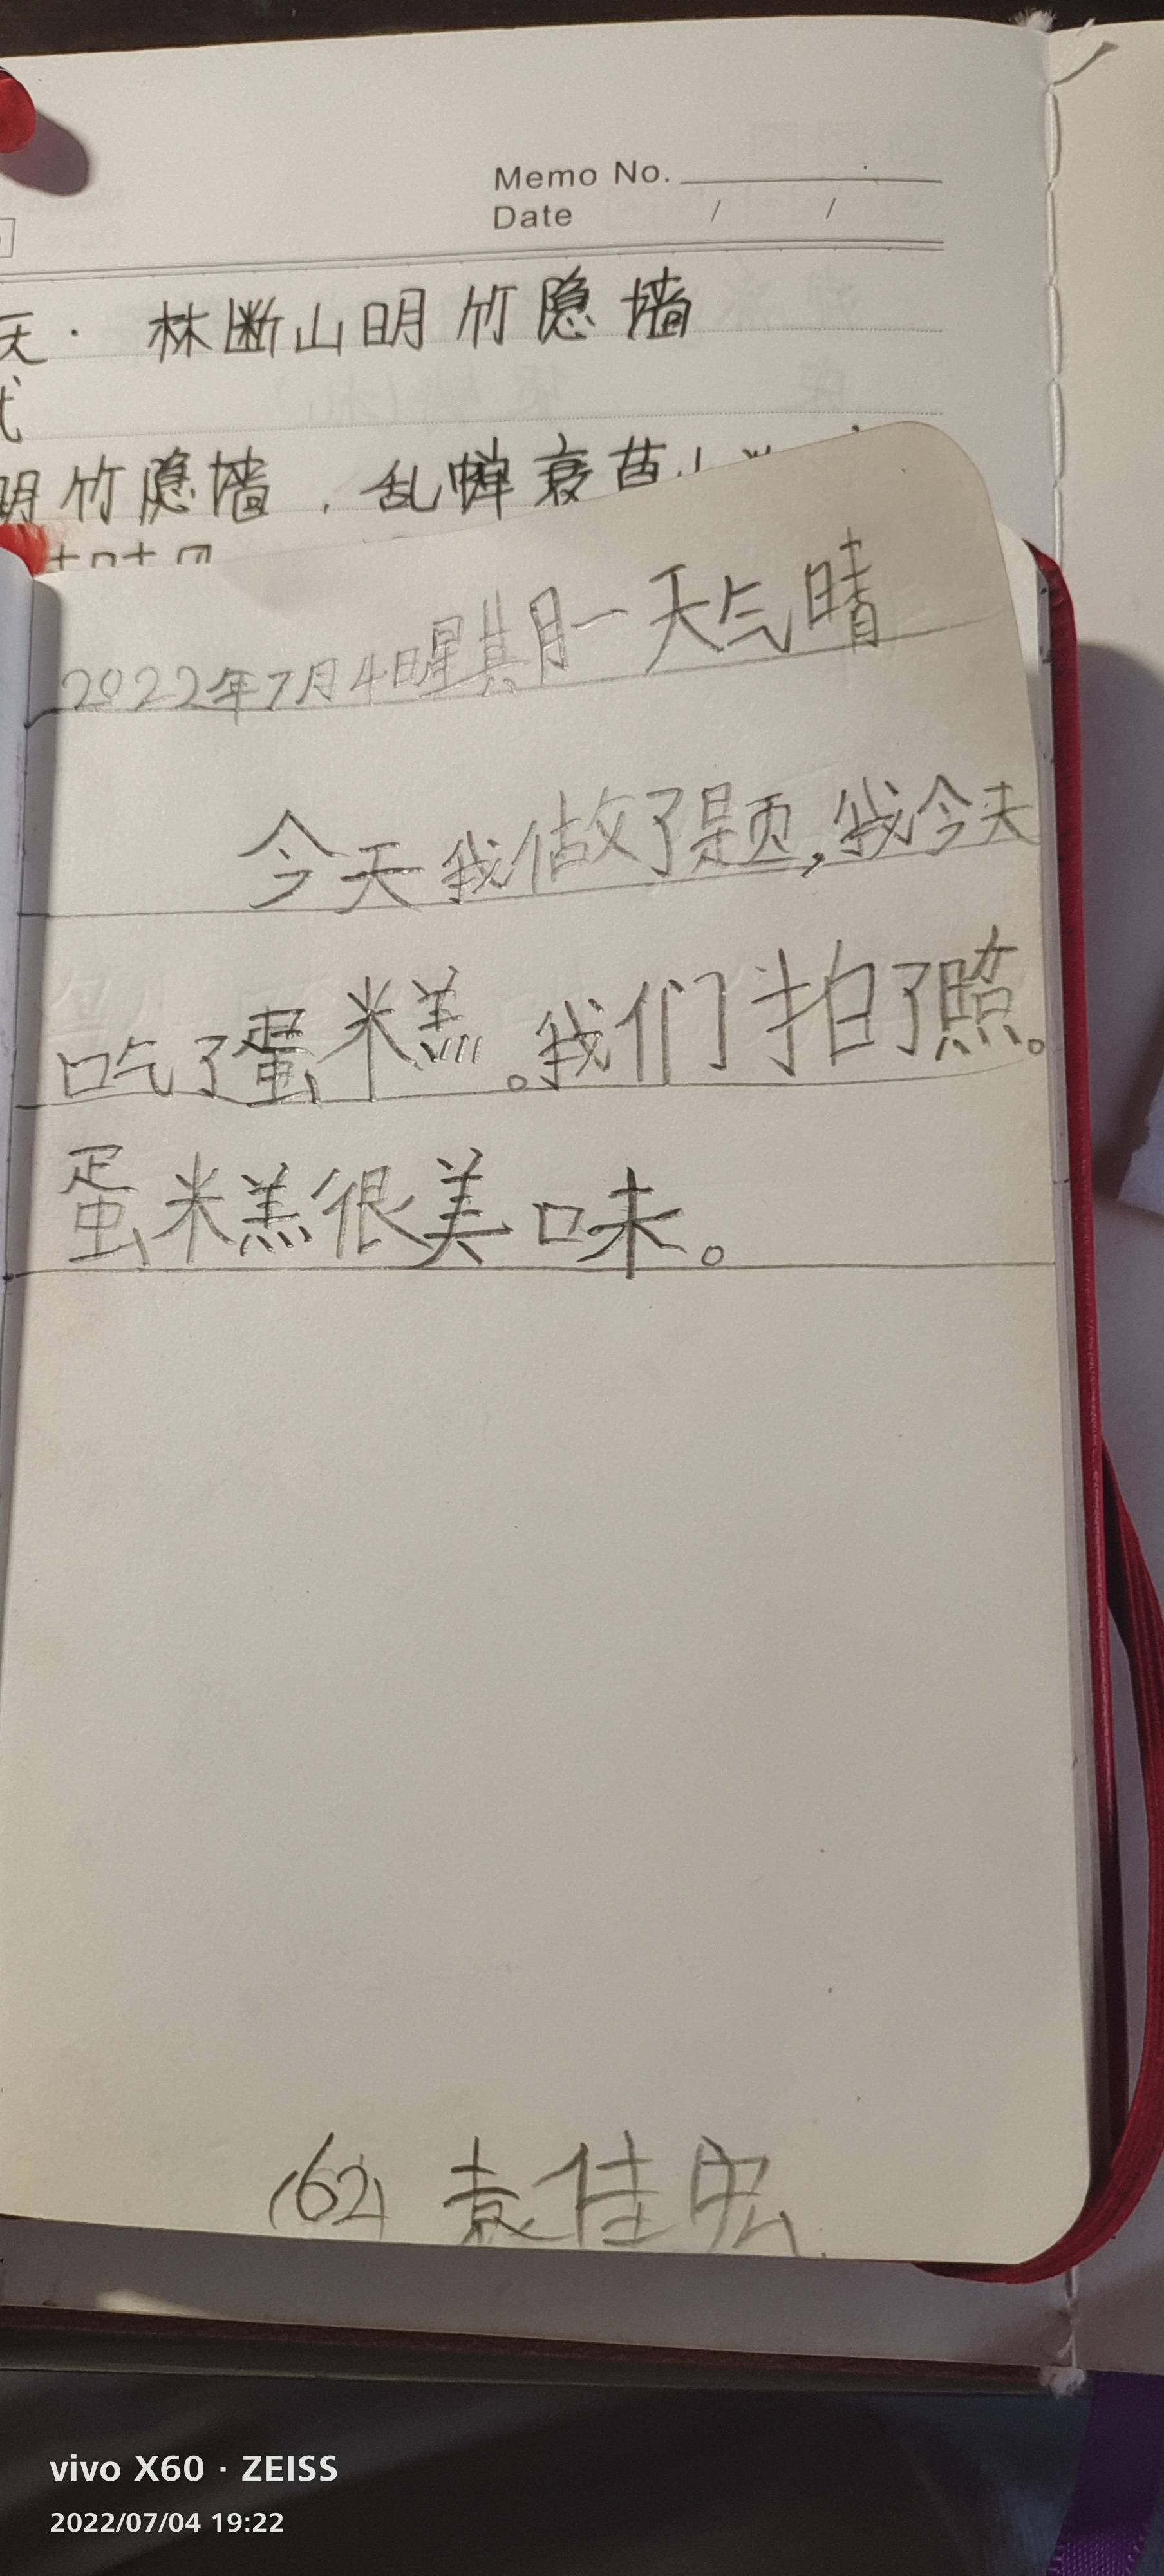 Memo No.
Date / /
天·林断山明竹隐墙
明竹隐墙.乱蝉衰草小
2022年7月4日星期一天气晴
今天我做了题,我今天
吃了蛋糕。我们拍了照。
蛋糕很美味。
(62) 袁佳宏
vivo X60 · ZEISS
2022/07/04 19:22